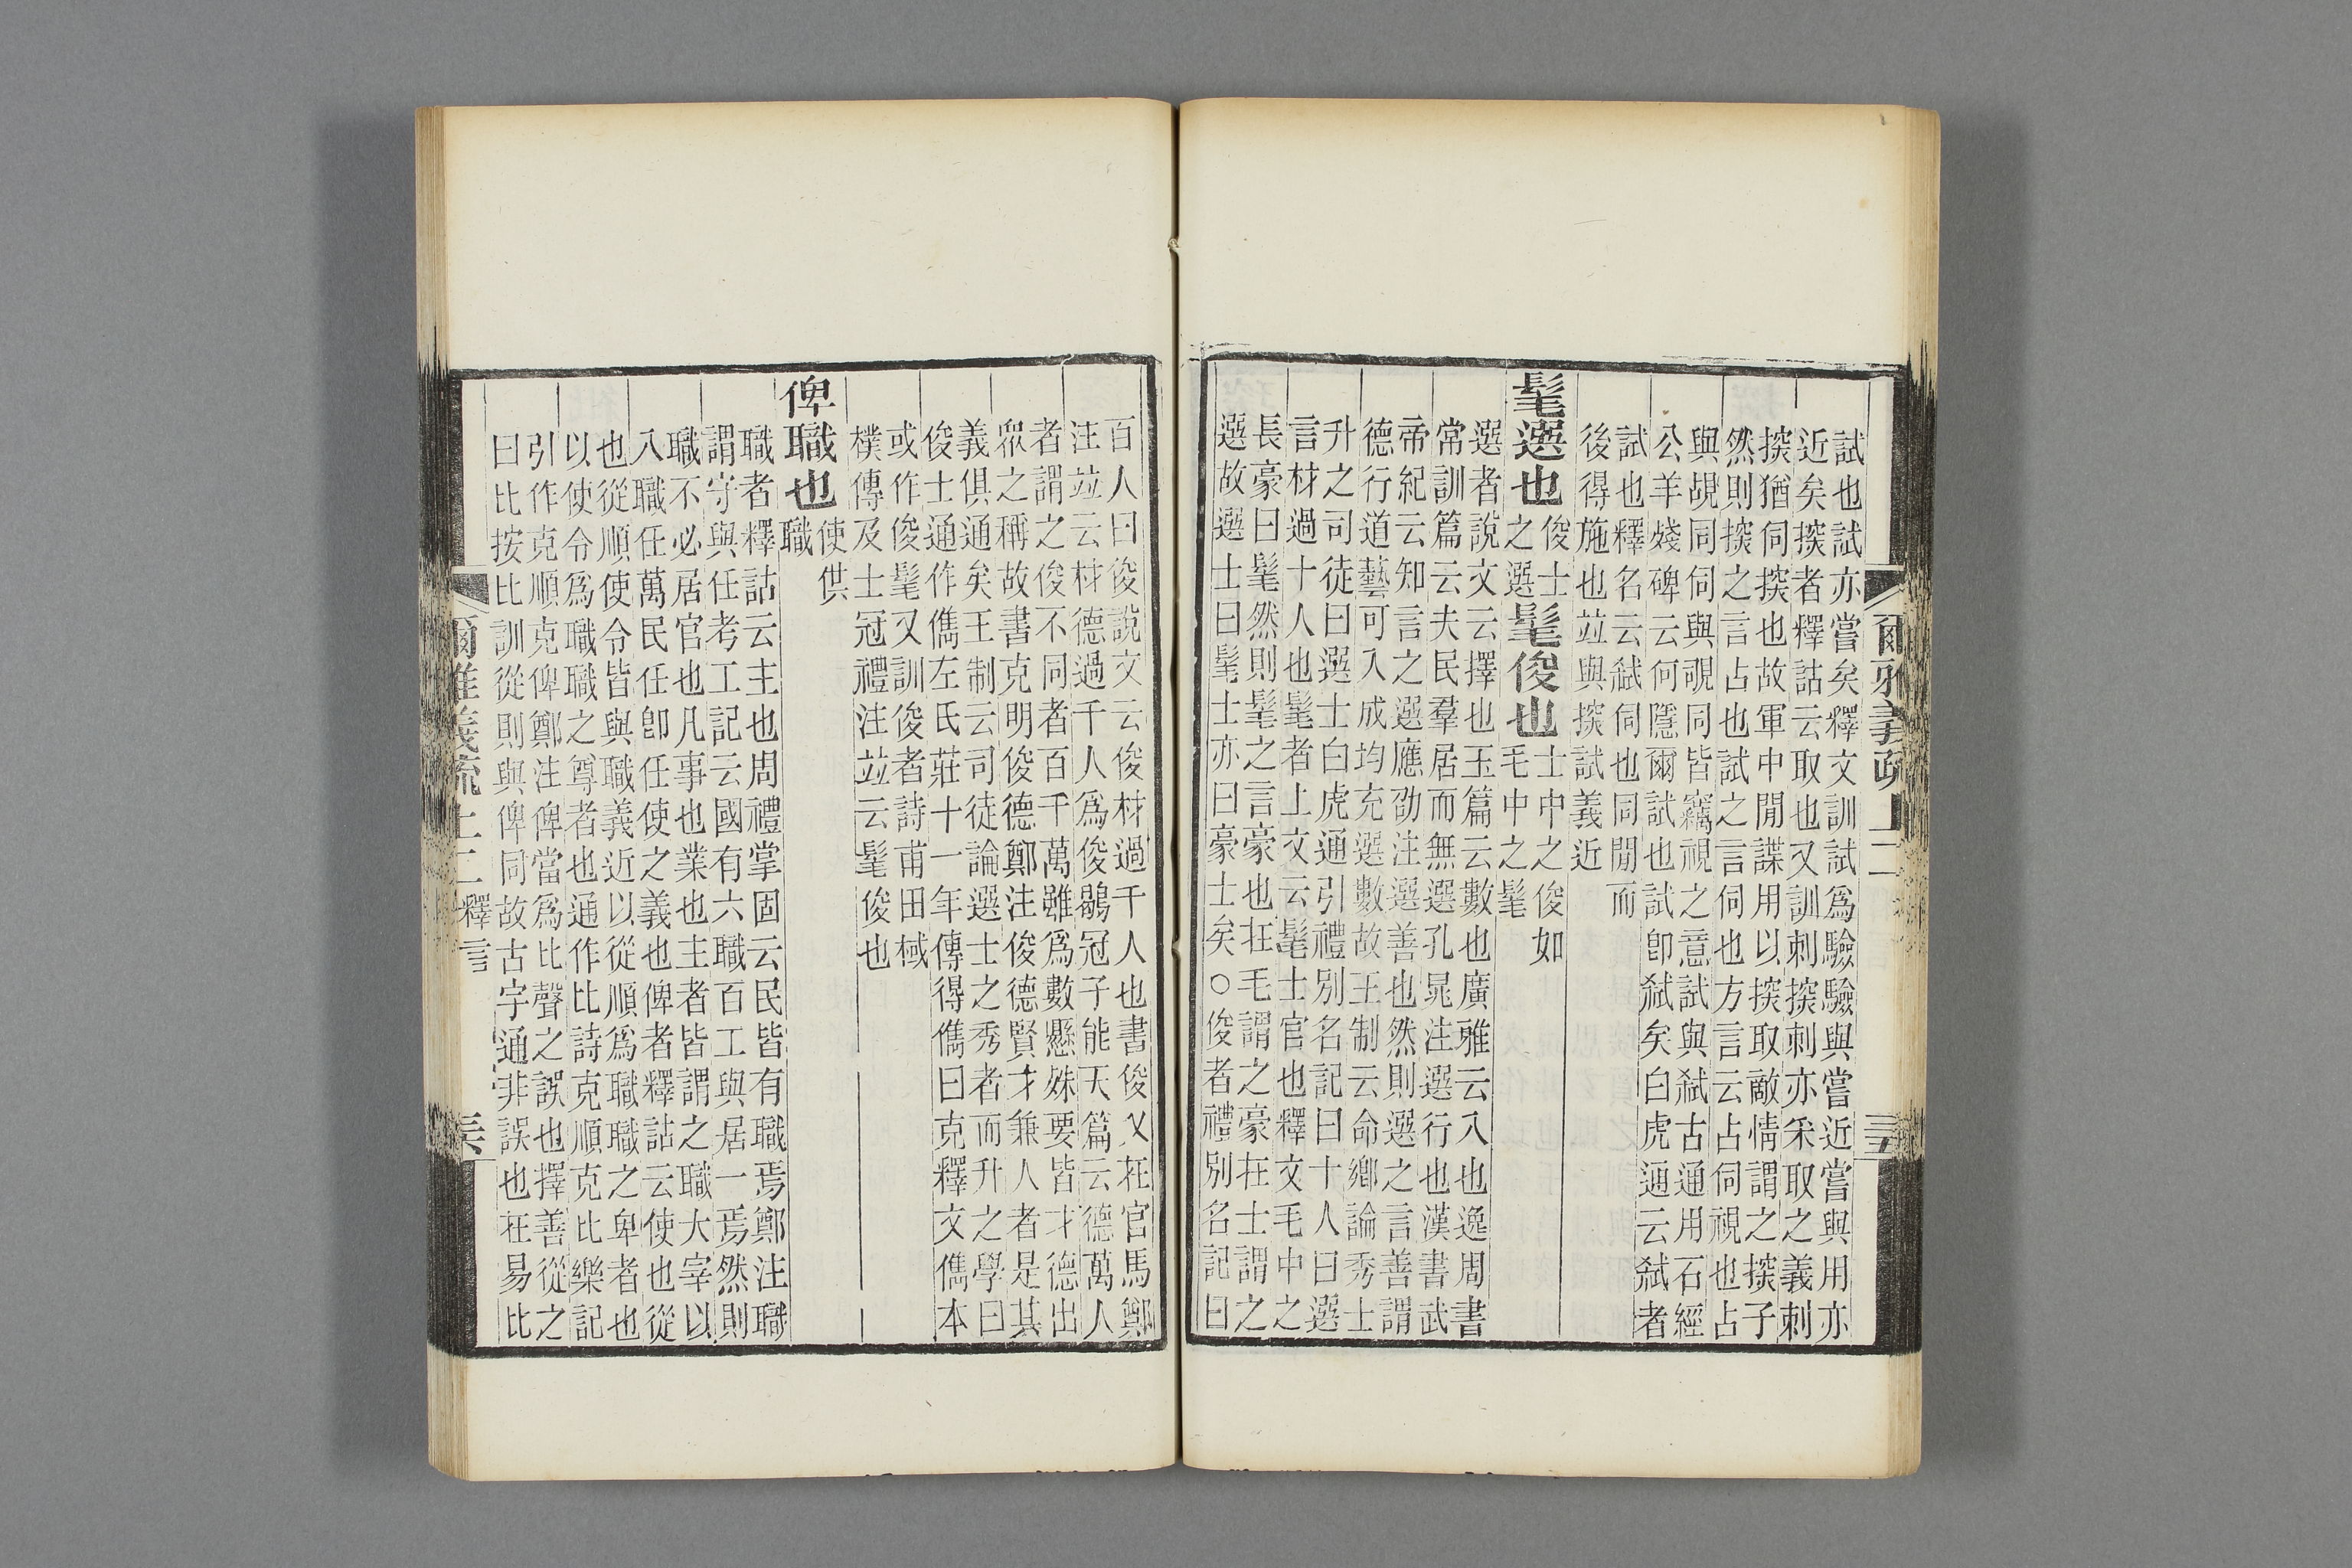 爾雅義疏 上二 三五
試也試亦嘗矣釋文訓試爲驗驗與嘗近嘗與用亦
近矣探者釋詁云取也又訓刺探刺亦釆取之義刺
探猶伺探也故軍中閒諜用以探取敵情謂之探子
然則探之言占也試之言伺也方言云占伺視也占
與覘同伺與覗同皆竊視之意試與弑古通用石經
公羊殘碑云何隱爾試也試卽弑矣白虎通云弑者
試也釋名云弑伺也同閒而
後得施也竝與探試義近
髦選也俊士之選髦俊也士中之俊如毛中之髦
選者說文云擇也玉篇云數也廣雅云入也逸周書
常訓篇云夫民羣居而無選孔晁注選行也漢書武
帝紀云知言之選應劭注選善也然則選之言善謂
德行道藝可入成均充選數故王制云命鄉論秀士
升之司徒曰選士白虎通引禮別名記曰十人曰選
言材過十人也髦者上文云髦士官也釋文毛中之
長豪曰髦然則髦之言豪也在毛謂之豪在士謂之
選故選士曰髦士亦曰豪士矣○俊者禮別名記曰
百人曰俊說文云俊材過千人也書俊乂在官馬鄭
注竝云材德過千人爲俊鶡冠子能天篇云德萬人
者謂之俊不同者百千萬雖爲數懸殊要皆才德出
眾之稱故書克明俊德鄭注俊德賢才兼人者是其
義俱通矣王制云司徒論選士之秀者而升之學曰
俊士通作儁左氏莊十一年傳得儁曰克釋文儁本
或作俊髦又訓俊者詩甫田棫
樸傳及士冠禮注竝云髦俊也
俾職也使供職
職者釋詁云主也周禮掌固云民皆有職焉鄭注職
謂守與任考工記云國有六職百工與居一焉然則
職不必居官也凡事也業也主者皆謂之職大宰以
入職任萬民任卽任使之義也俾者釋詁云使也從
也從順使令皆與職義近以從順爲職職之卑者也
以使令爲職職之尊者也通作比詩克順克比樂記
引作克順克俾鄭注俾當爲比聲之誤也擇善從之
曰比按比訓從則與俾同故古字通非誤也在易比
爾雅義疏 上二 釋言 三六